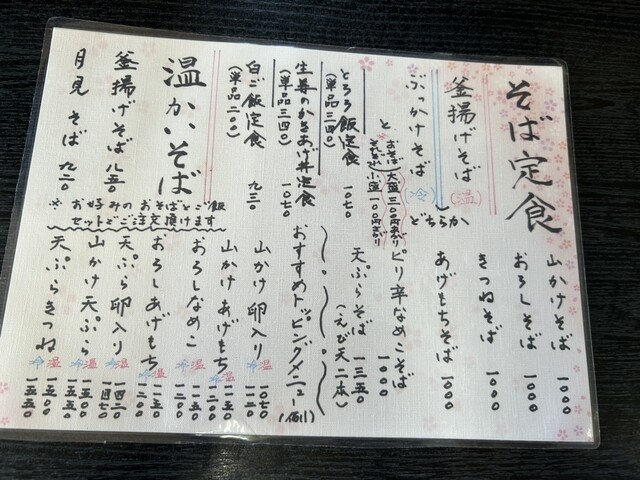 そば定食
釜揚げそば(温)
ぶっかけそば(冷)
どちらか
と
おそば大盛三〇〇円まし
とろろ飯定食 一〇七〇
(単品三四〇)
生姜のかきあげ丼定食 一〇七〇
(単品三四〇)
白ご飯定食 九三〇
(単品二〇〇)
温かいそば
釜揚げそば 八五〇
月見そば 九二〇
※お好みのおそばとご飯
セットでご注文頂けます
山かけそば 一〇〇〇
おろしそば 一〇〇〇
きつねそば 一〇〇〇
あげもちそば 一〇〇〇
ピリ辛なめこそば 一〇〇〇
天ぷらそば 一三五〇
(えび天二本)
おすすめトッピングメニュー(例)
山かけ卵入り 温 一〇七〇
冷 一一二〇
山かけあげもち 温 一一五〇
冷 一二〇〇
おろしなめこ 冷 一一二〇
おろしあげもち 冷 一一二〇
天ぷら卵入り 温 一四二〇
冷 一四七〇
山かけ天ぷら 温 一五〇〇
冷 一五五〇
天ぷらきつね 温 一五〇〇
冷 一五五〇